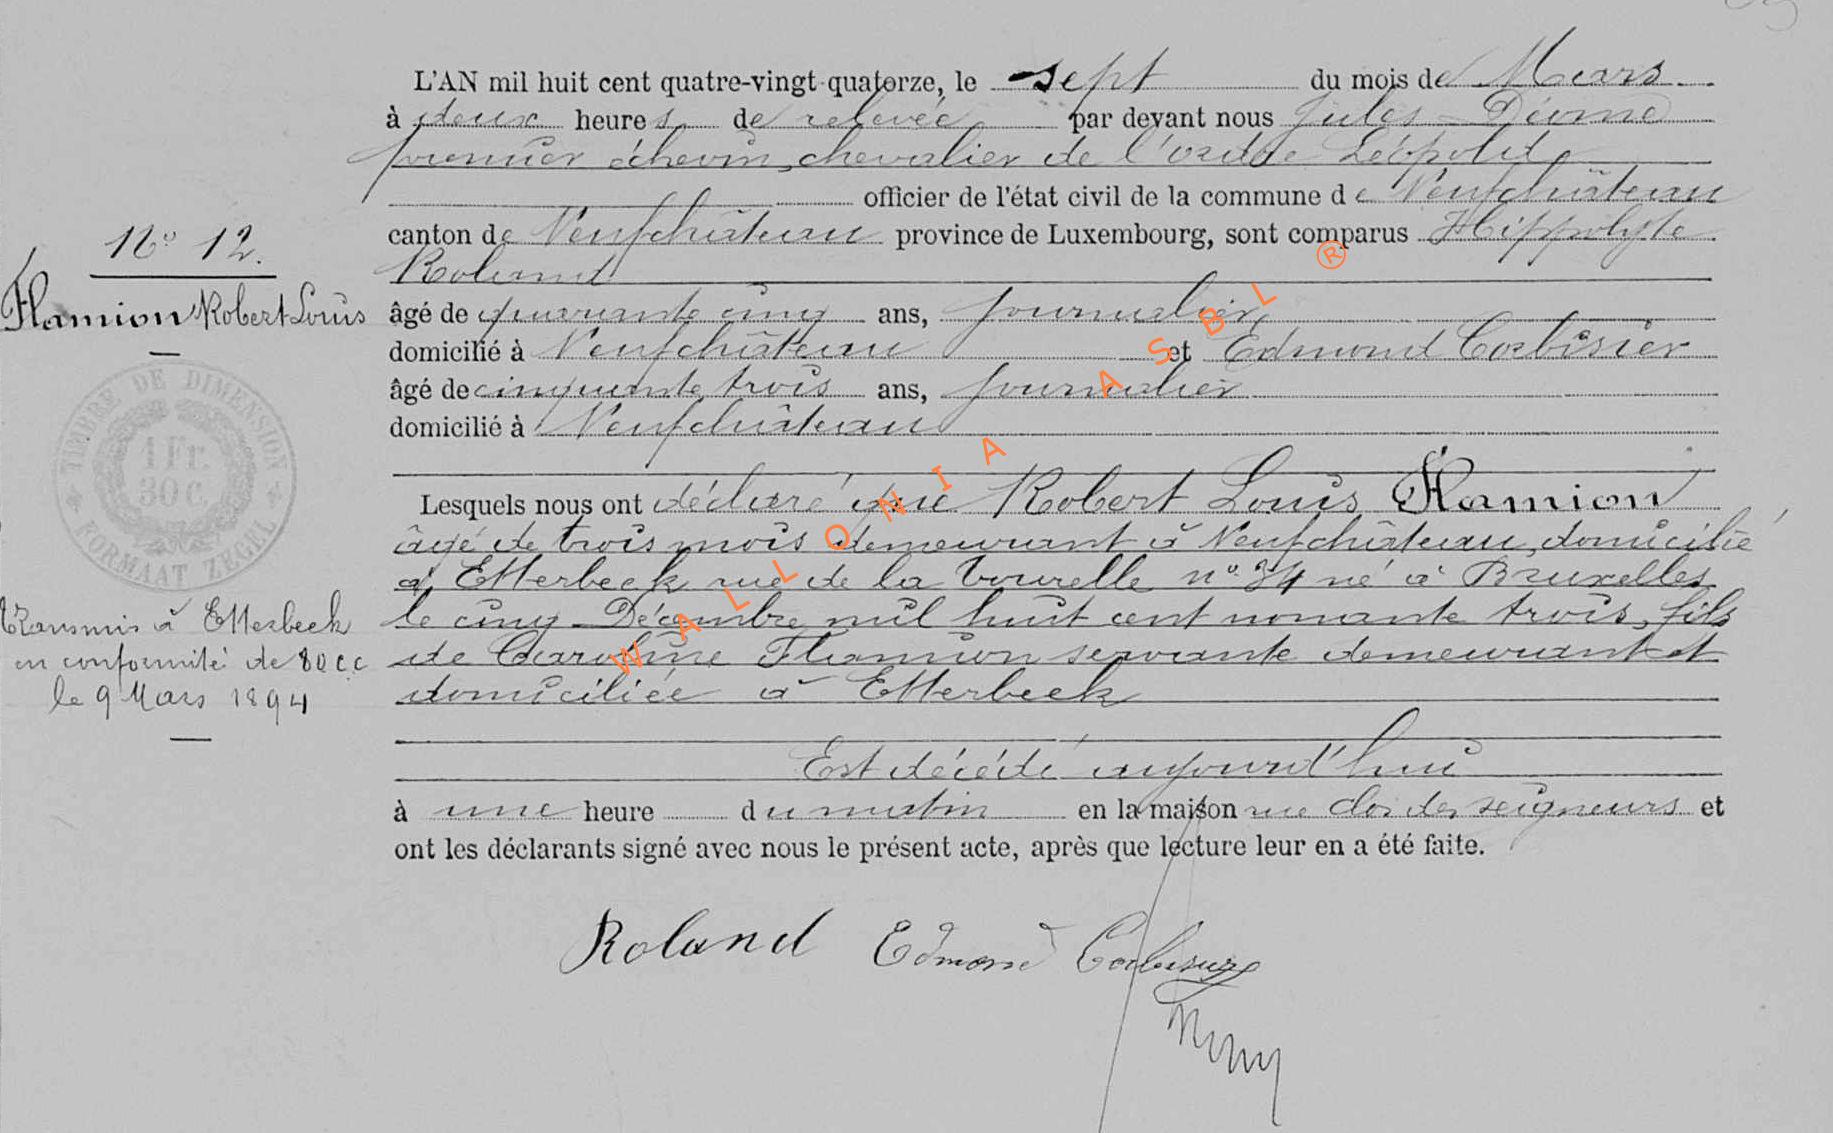 L'AN mil huit cent quatre-vingt-quatorze, le sept du mois de Mars
à deux heures de relevée par devant nous Jules
premier échevin, chevalier de l'ordre Léopold
officier de l'état civil de la commune de Neufchâteau
canton de Neufchâteau province de Luxembourg, sont comparus Hippolyte
Roland
âgé de quarante cinq ans, journalier,
domicilié à Neufchâteau et Edmond Corbisier
âgé de cinquante trois ans, journalier
domicilié à Neufchâteau
Lesquels nous ont déclaré que Robert Louis Flamion
âgé de trois mois demeurant à Neufchâteau, domicilié
à Etterbeek rue de la Tourelle n° 34 né à Bruxelles
le cinq Décembre mil huit cent nonante trois, fils
de Caroline Flamion servante demeurant et
domiciliée à Etterbeek
Est décédé aujourd'hui
à une heure du matin en la maison rue clos des seigneurs et
ont les déclarants signé avec nous le présent acte, après que lecture leur en a été faite.
Roland Edmond Corbisier
N° 12.
Flamion Robert Louis
TIMBRE DE DIMENSION
1 Fr.
30 C.
FORMAAT ZEGEL
Transmis à Etterbeek
en conformité de 80 CC
le 9 Mars 1894
WALLONIA ASBL ®